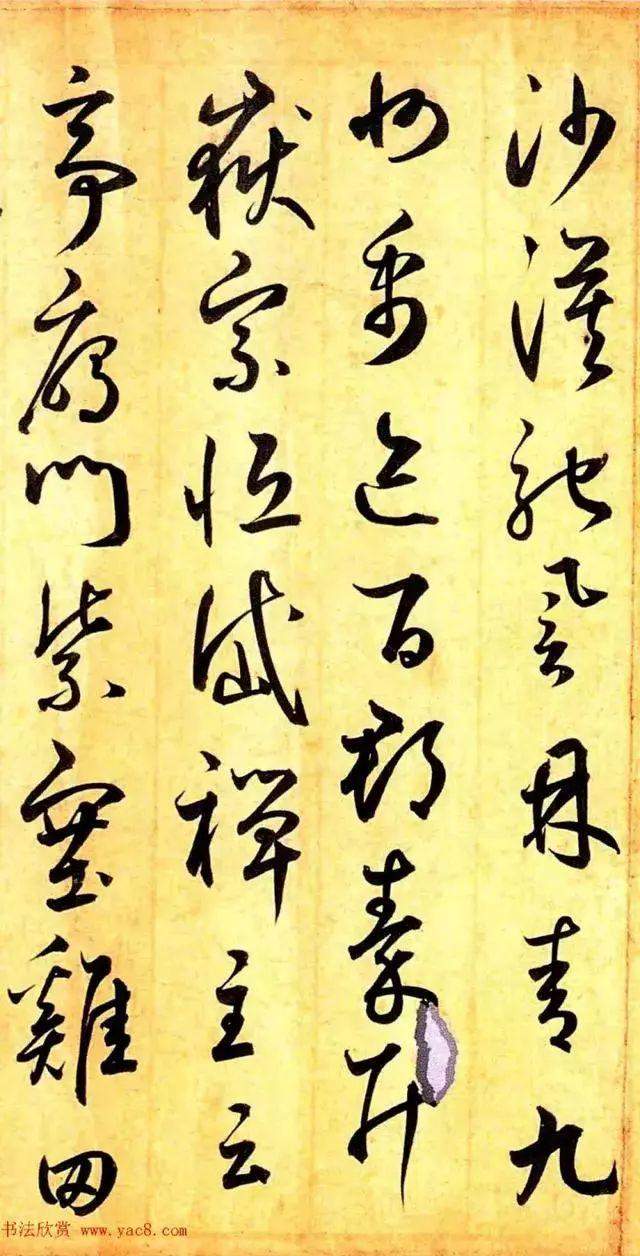 沙漠馳譽丹青九
州禹迹百郡秦并
嶽宗恒岱禪主云
亭鴈門紫塞雞田
书法欣赏 www.yac8.com